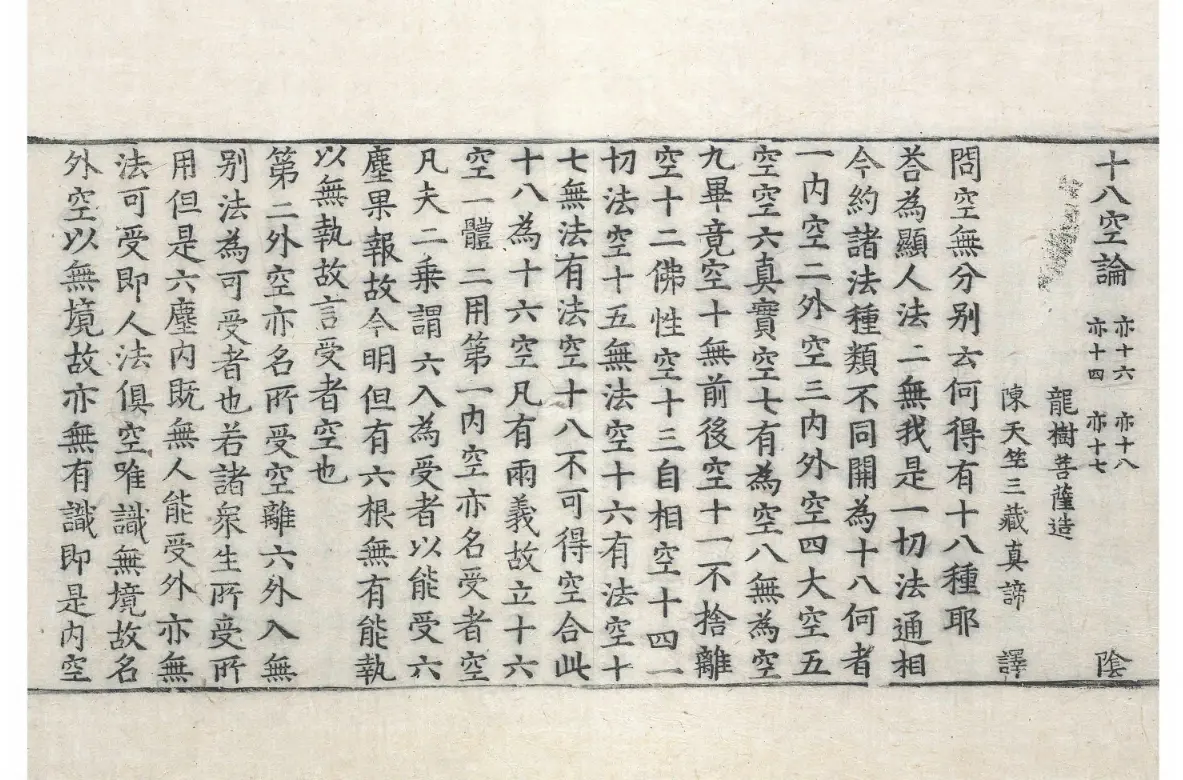 十八空論 亦十六 亦十八 陰
亦十四 亦十七
龍樹菩薩造
陳天竺三藏真諦 譯
問空無分別云何得有十八種耶
荅為顯人法二無我是一切法通相
今約諸法種類不同開為十八何者
一內空二外空三內外空四大空五
空空六真實空七有為空八無為空
九畢竟空十無前後空十一不捨離
空十二佛性空十三自相空十四一
切法空十五無法空十六有法空十
七無法有法空十八不可得空合此
十八為十六空凡有兩義故立十六
空一體二用第一內空亦名受者空
凡夫二乘謂六入為受者以能受六
塵果報故今明但有六根無有能執
以無執故言受者空也
第二外空亦名所受空離六外入無
別法為可受者也若諸衆生所受所
用但是六塵內既無人能受外亦無
法可受即人法俱空唯識無境故名
外空以無境故亦無有識即是內空